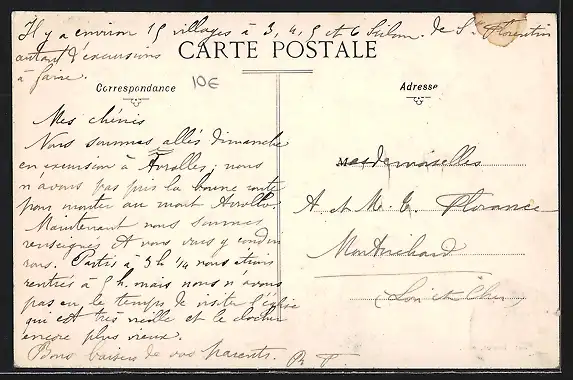 Il y a environ 15 villages à 3, 4, 5 et 6 kilom. de St Florentin
autant d'excursions
à faire.
CARTE POSTALE
Correspondance
10€
Adresse
Mes chéris
Nous sommes allés dimanche
en excursion à Avrolles; nous
n'avons pas pris la bonne route
pour monter au mont Avrollo.
Maintenant nous sommes
renseignés et nous vous y condui
rons. Partis à 3h 1/4 nous étions
rentrés à 5 h. mais nous n'avons
pas eu le temps de visiter l'église
qui est très vieille et le clocher
encore plus vieux.
Bons baisers de vos parents.
Mesdemoiselles
A et M. C. Florance
Montrichard
(Loir et Cher)